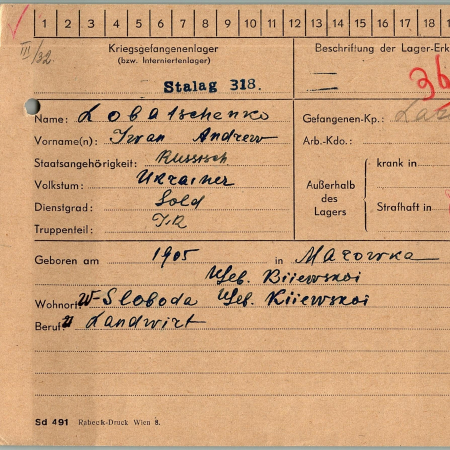 1 2 3 4 5 6 7 8 9 10 11 12 13 14 15 16 17 18
III/32
Kriegsgefangenenlager
(bzw. Interniertenlager)
Beschriftung der Lager-Erk
Stalag 318.
36
Name: Lobatschenko
Gefangenen-Kp.:
Vorname(n): Iwan Andrew
Arb.-Kdo.:
Staatsangehörigkeit: Russisch
krank in
Volkstum: Ukrainer
Außerhalb
des
Lagers
Dienstgrad: Sold
Strafhaft in
Truppenteil: I.R
Geboren am 1905 in Marowka
Geb. Kiiewskoi
Wohnort: W-Sloboda Geb. Kiiewskoi
Beruf: Landwirt
Sd 491 Rabeck-Druck Wien 8.